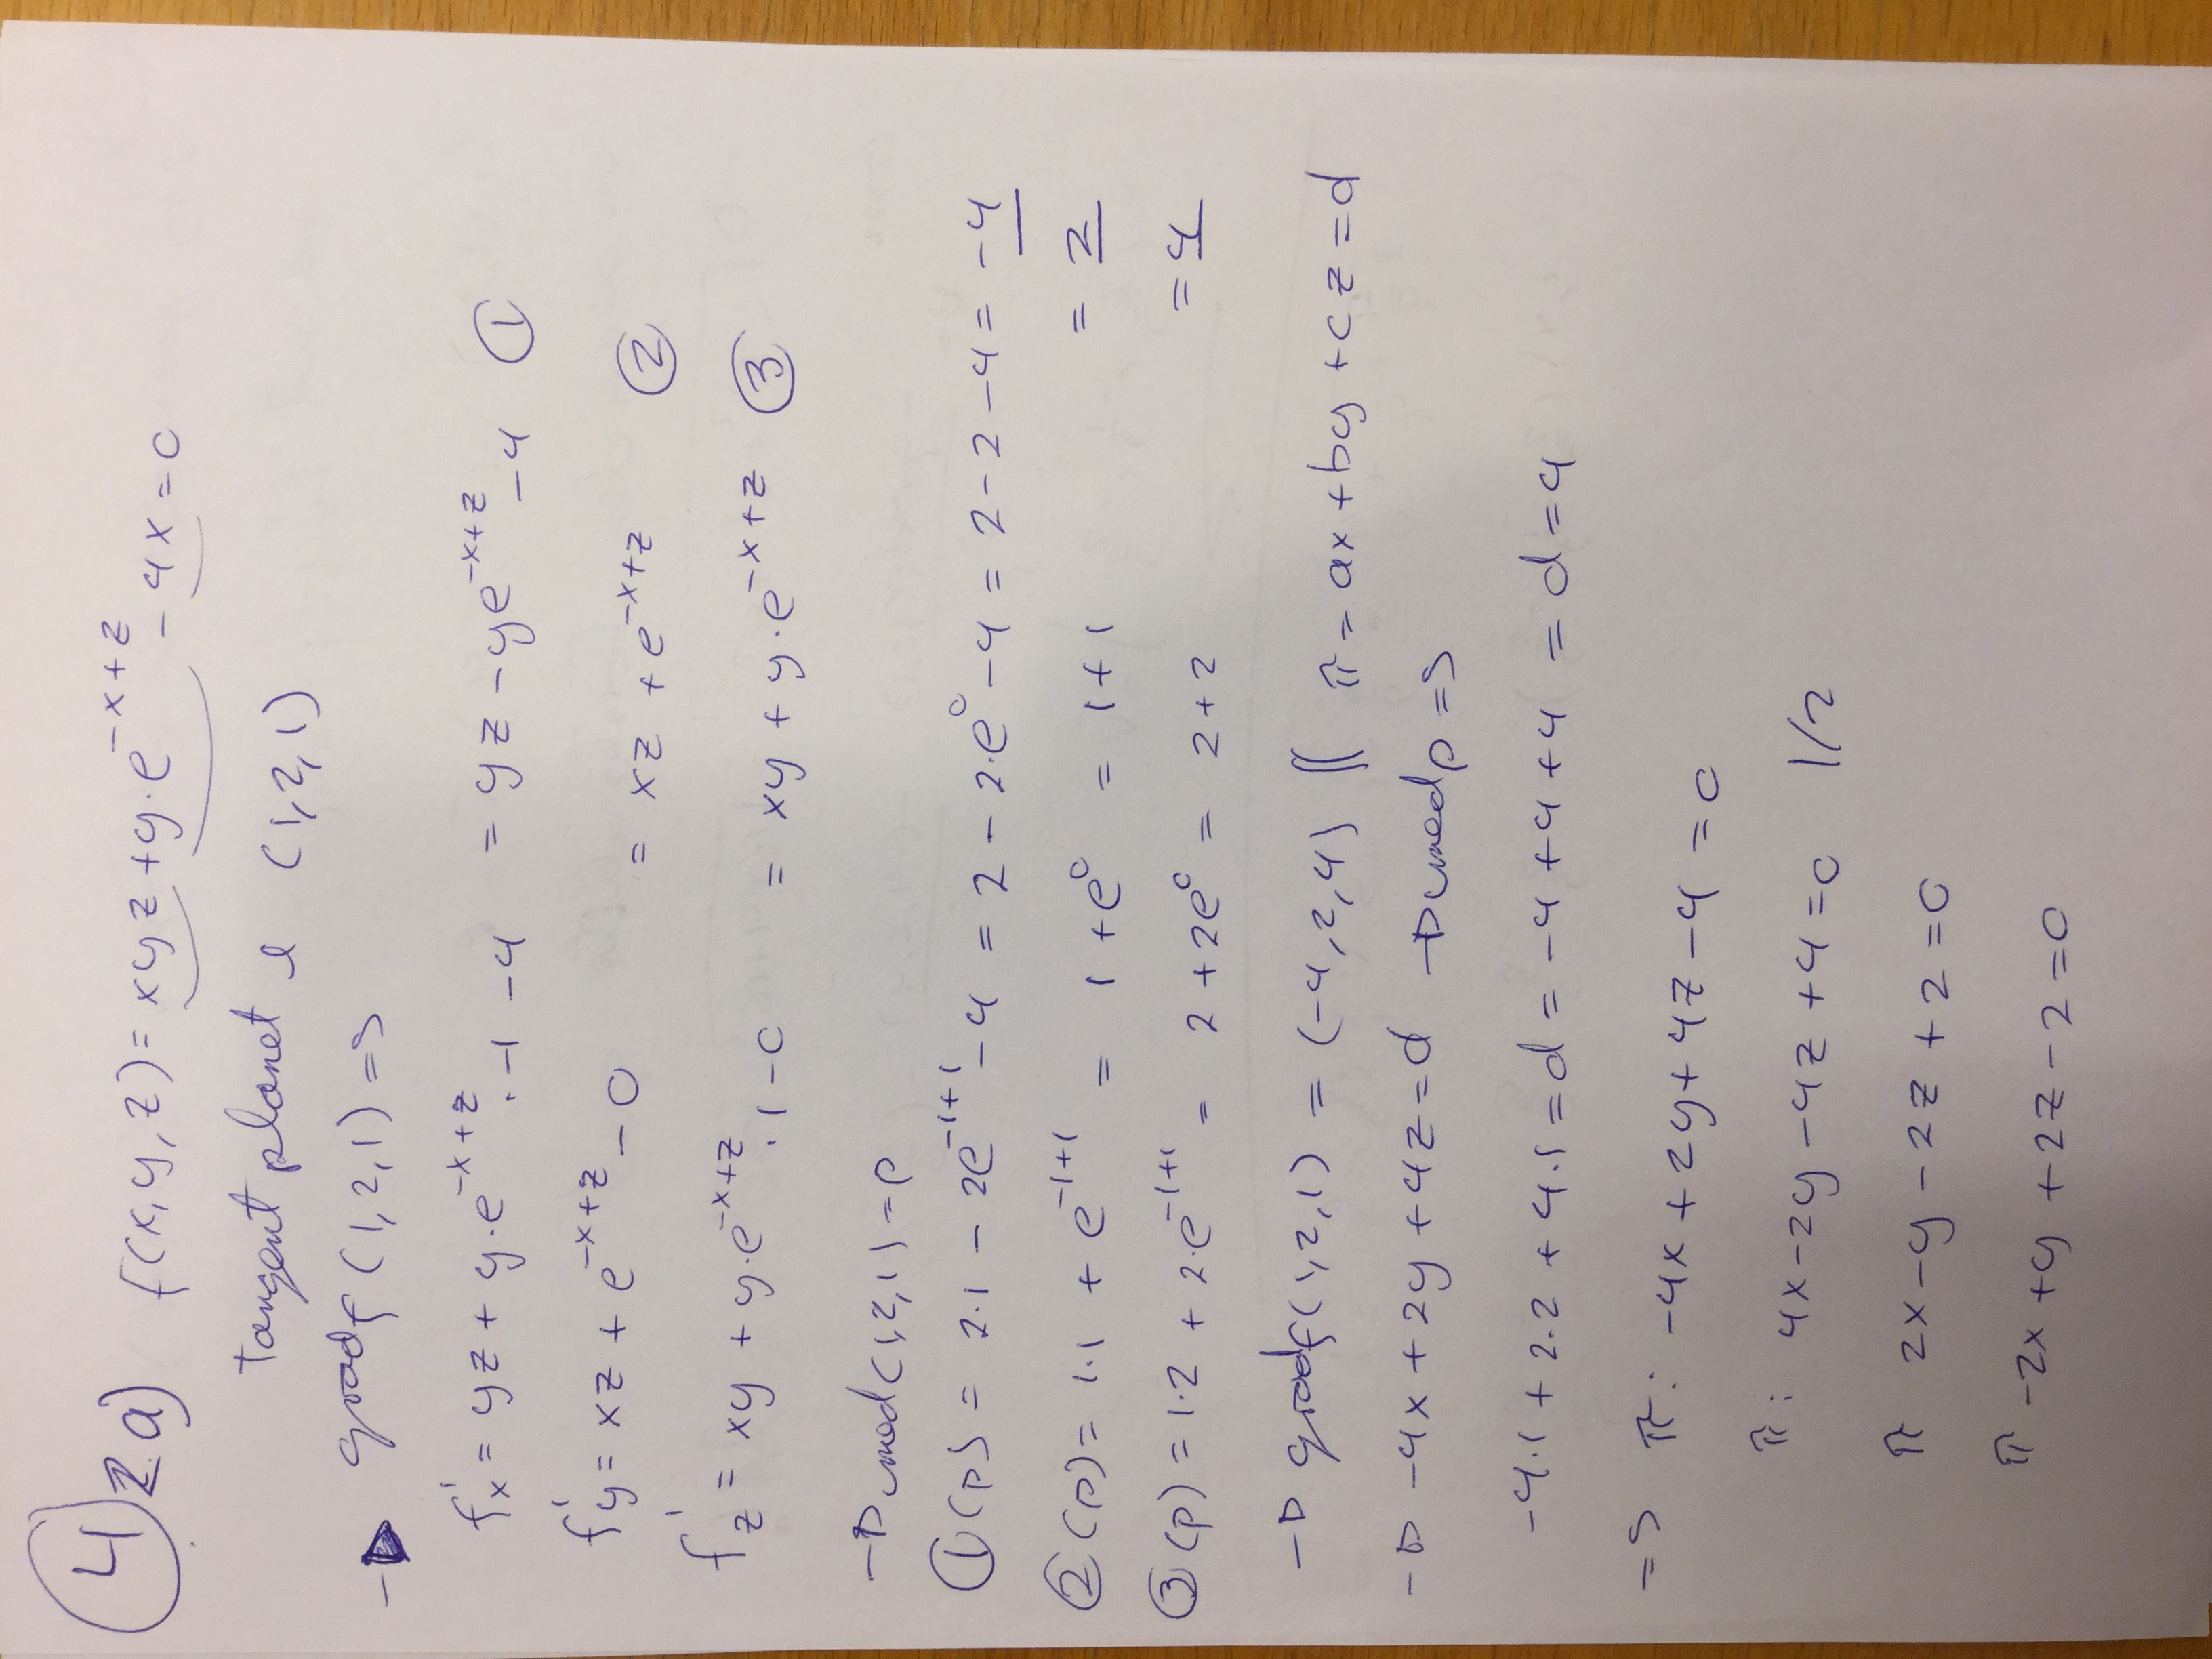 4 2.a) f(x,y,z) = xyz + y·e^{-x+z} - 4x = 0
tangent planet i (1,2,1)
→ gradf (1,2,1) =>
f'x = yz + y·e^{-x+z} · -1 -4 = yz - ye^{-x+z} - 4 ①
f'y = xz + e^{-x+z} - 0 = xz + e^{-x+z} ②
f'z = xy + y·e^{-x+z} · 1 - 0 = xy + y·e^{-x+z} ③
→ med (1,2,1) = p
①(p) = 2·1 - 2e^{-1+1} - 4 = 2 - 2·e^0 - 4 = 2 - 2 - 4 = -4
②(p) = 1·1 + e^{-1+1} = 1 + e^0 = 1 + 1 = 2
③(p) = 1·2 + 2·e^{-1+1} = 2 + 2e^0 = 2 + 2 = 4
→ gradf(1,2,1) = (-4,2,4) // π = ax + by + cz = d
→ -4x + 2y + 4z = d → med p =>
-4·1 + 2·2 + 4·1 = d = -4 + 4 + 4 = d = 4
=> π: -4x + 2y + 4z - 4 = 0
π: 4x - 2y - 4z + 4 = 0 1/2
π 2x - y - 2z + 2 = 0
π -2x + y + 2z - 2 = 0